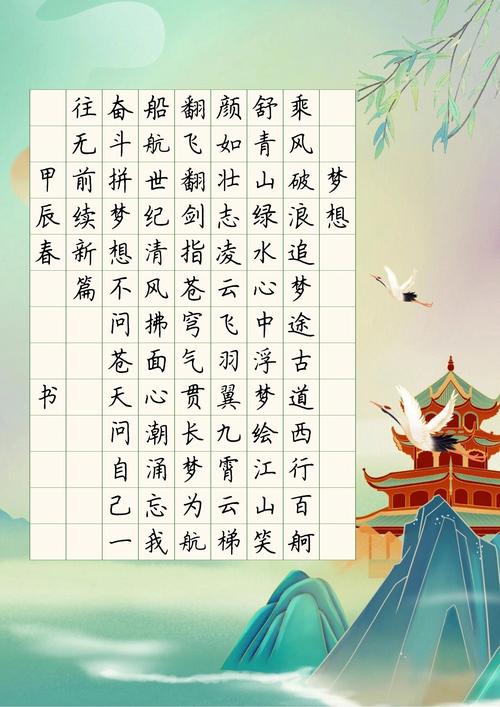 梦想
乘风破浪追梦途古道西行百舸
舒青山绿水心中浮梦绘江山笑
颜如壮志凌云飞羽翼九霄云梯
翻飞翻剑指苍穹气贯长梦为航
船航世纪清风拂面心潮涌忘我
奋斗拼梦想不问苍天问自己一
往无前续新篇
甲辰春 书